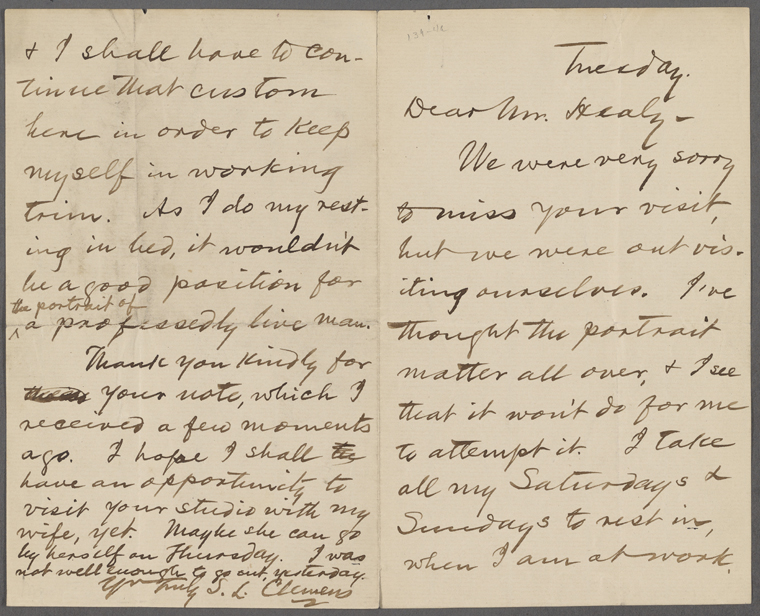 Tuesday.
Dear Mr. Healy –
We were very sorry
to miss your visit,
but we were out vis-
iting ourselves. I've
thought the portrait
matter all over, & I see
that it won't do for me
to attempt it. I take
all my Saturdays &
Sundays to rest in,
when I am at work,
& I shall have to con-
tinue that custom
here in order to keep
myself in working
trim. As I do my rest-
ing in bed, it wouldn't
be a good position for
the portrait of
^ a professedly live man.
Thank you kindly for
your note, which I
received a few moments
ago. I hope I shall the
have an opportunity to
visit your studio with my
wife, yet. Maybe she can go
by herself on Thursday. I was
not well enough to go out, yesterday.
Yrs Truly S. L. Clemens